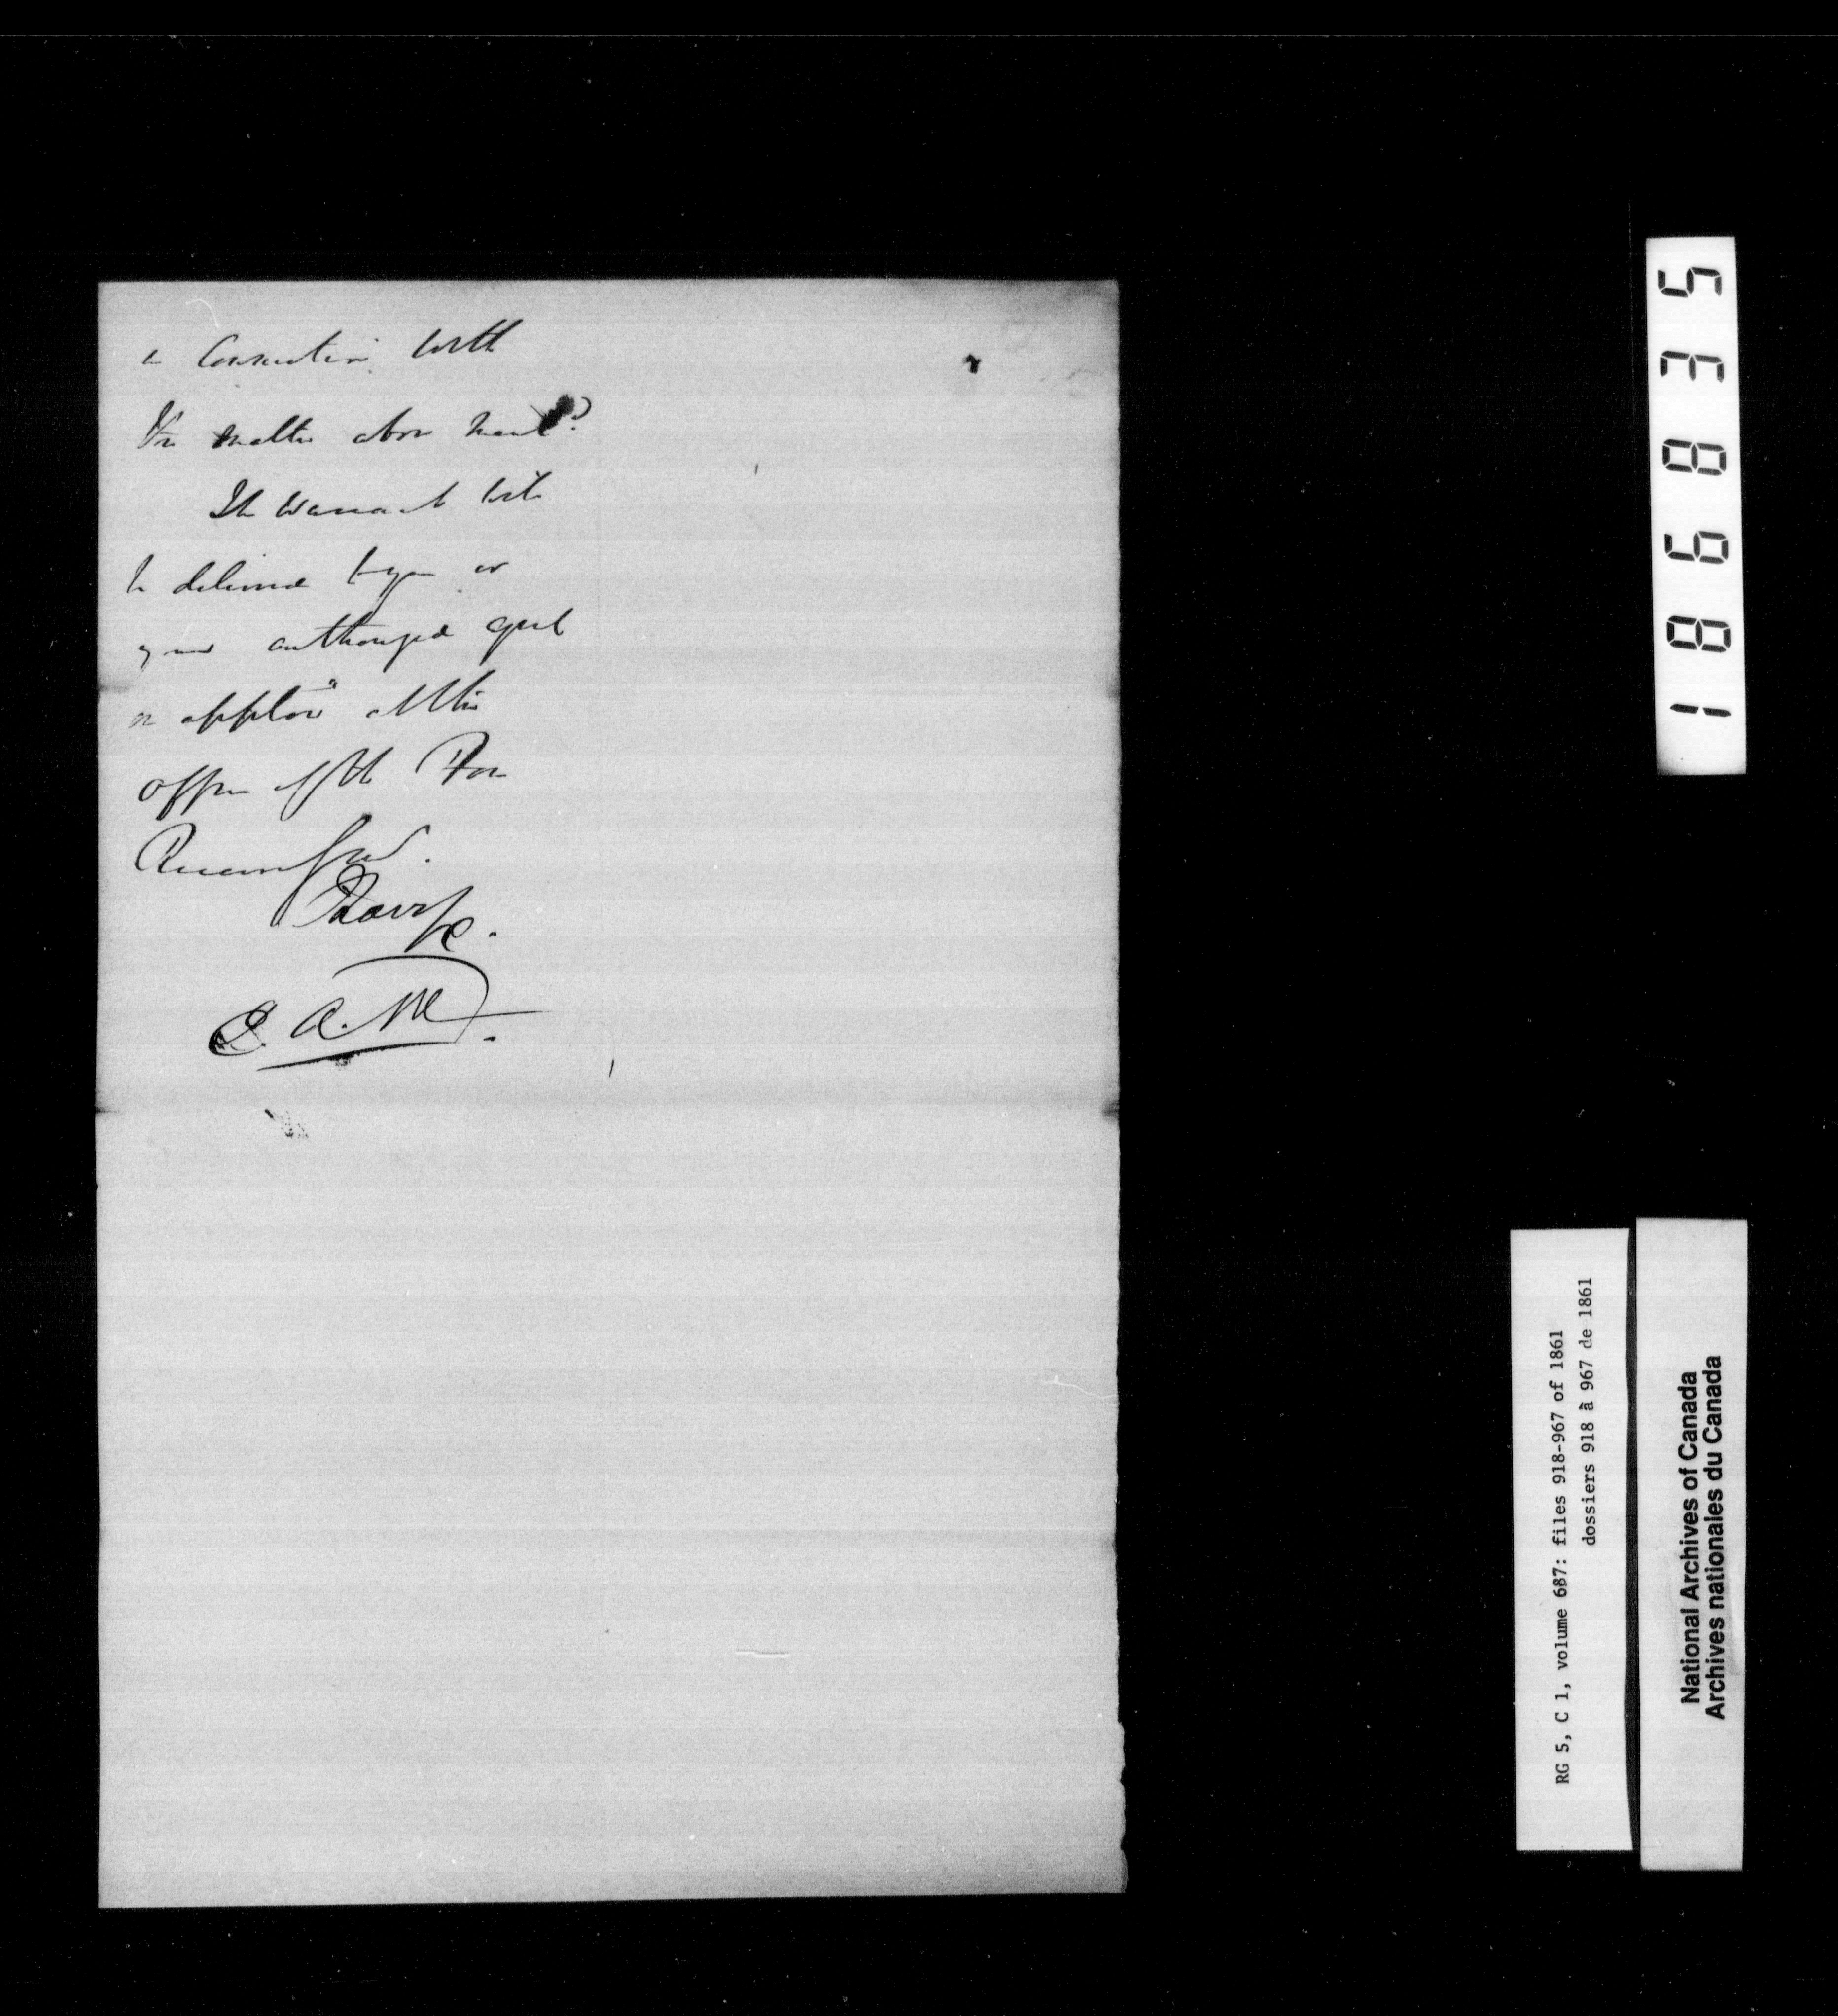 in Connection with
the matter above ment?
The Warrant will
be delivered to you or
your authorized agent
on applion at the
office of the
Receiver Genl.
I have &c.
E. A. M.
186835
RG 5, C 1, volume 687: files 918-967 of 1861
dossiers 918 à 967 de 1861
National Archives of Canada
Archives nationales du Canada